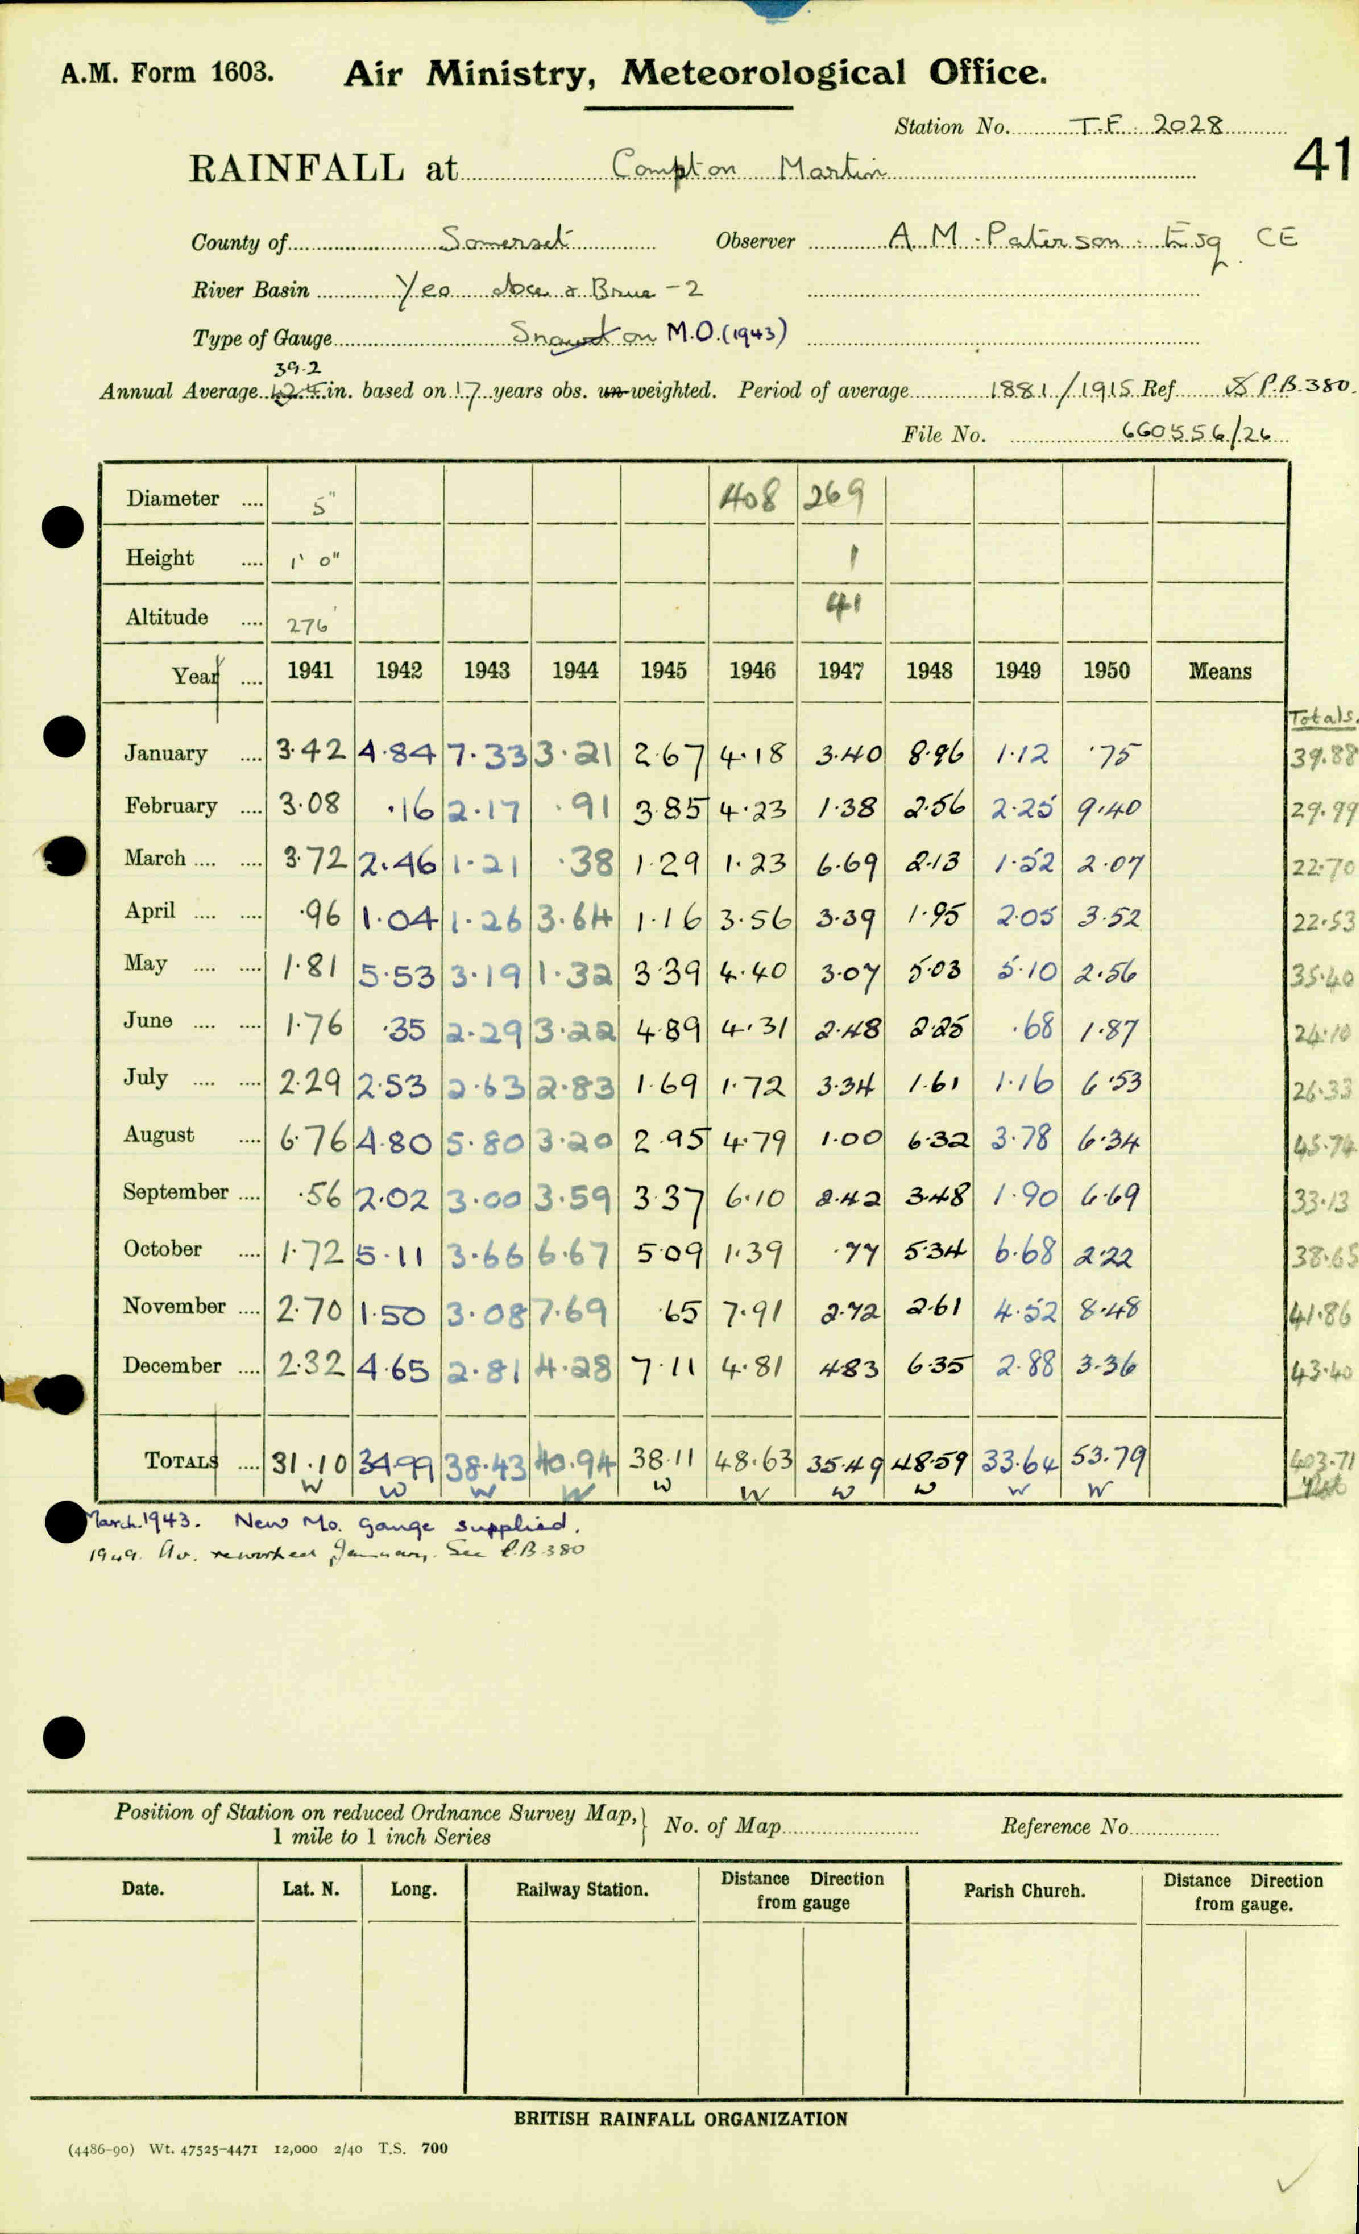 A.M. Form 1603. Air Ministry, Meteorological Office.
Station No. T.F. 2028
41
RAINFALL at Compton Martin
County of Somerset Observer A. M. Paterson Esq. CE
River Basin Yeo Axe & Brue - 2
Type of Gauge Snowdon M.O. (1943)
39.2
Annual Average in. based on 17 years obs. un-weighted. Period of average 1881/1915 Ref P.B. 380.
File No. 660556/26
Diameter .... 5" 408 269
Height .... 1' 0" 1
Altitude .... 276' 41
Year .... 1941 1942 1943 1944 1945 1946 1947 1948 1949 1950 Means
Totals.
January .... 3.42 4.84 7.33 3.21 2.67 4.18 3.40 8.96 1.12 .75 39.88
February .... 3.08 .16 2.17 .91 3.85 4.23 1.38 2.56 2.25 9.40 29.99
March .... .... 3.72 2.46 1.21 .38 1.29 1.23 6.69 2.13 1.52 2.07 22.70
April .... .... .96 1.04 1.26 3.64 1.16 3.56 3.39 1.95 2.05 3.52 22.53
May .... .... 1.81 5.53 3.19 1.32 3.39 4.40 3.07 5.03 5.10 2.56 35.40
June .... .... 1.76 .35 2.29 3.22 4.89 4.31 2.48 2.25 .68 1.87 24.10
July .... .... 2.29 2.53 2.63 2.83 1.69 1.72 3.34 1.61 1.16 6.53 26.33
August .... 6.76 4.80 5.80 3.20 2.95 4.79 1.00 6.32 3.78 6.34 45.74
September .... .56 2.02 3.00 3.59 3.37 6.10 2.42 3.48 1.90 6.69 33.13
October .... 1.72 5.11 3.66 6.67 5.09 1.39 .77 5.34 6.68 2.22 38.65
November .... 2.70 1.50 3.08 7.69 .65 7.91 2.72 2.61 4.52 8.48 41.86
December .... 2.32 4.65 2.81 4.28 7.11 4.81 4.83 6.35 2.88 3.36 43.40
TOTALS .... 31.10 34.99 38.43 40.94 38.11 48.63 35.49 48.59 33.64 53.79 403.71
W W W W W W W W W W
March 1943. New Mo. gauge supplied.
1949. Av. reworked January. See P.B. 380
Position of Station on reduced Ordnance Survey Map,
1 mile to 1 inch Series
No. of Map
Reference No.
Date. Lat. N. Long. Railway Station. Distance Direction from gauge Parish Church. Distance Direction from gauge.
BRITISH RAINFALL ORGANIZATION
(4486-90) Wt. 47525-4471 12,000 2/40 T.S. 700